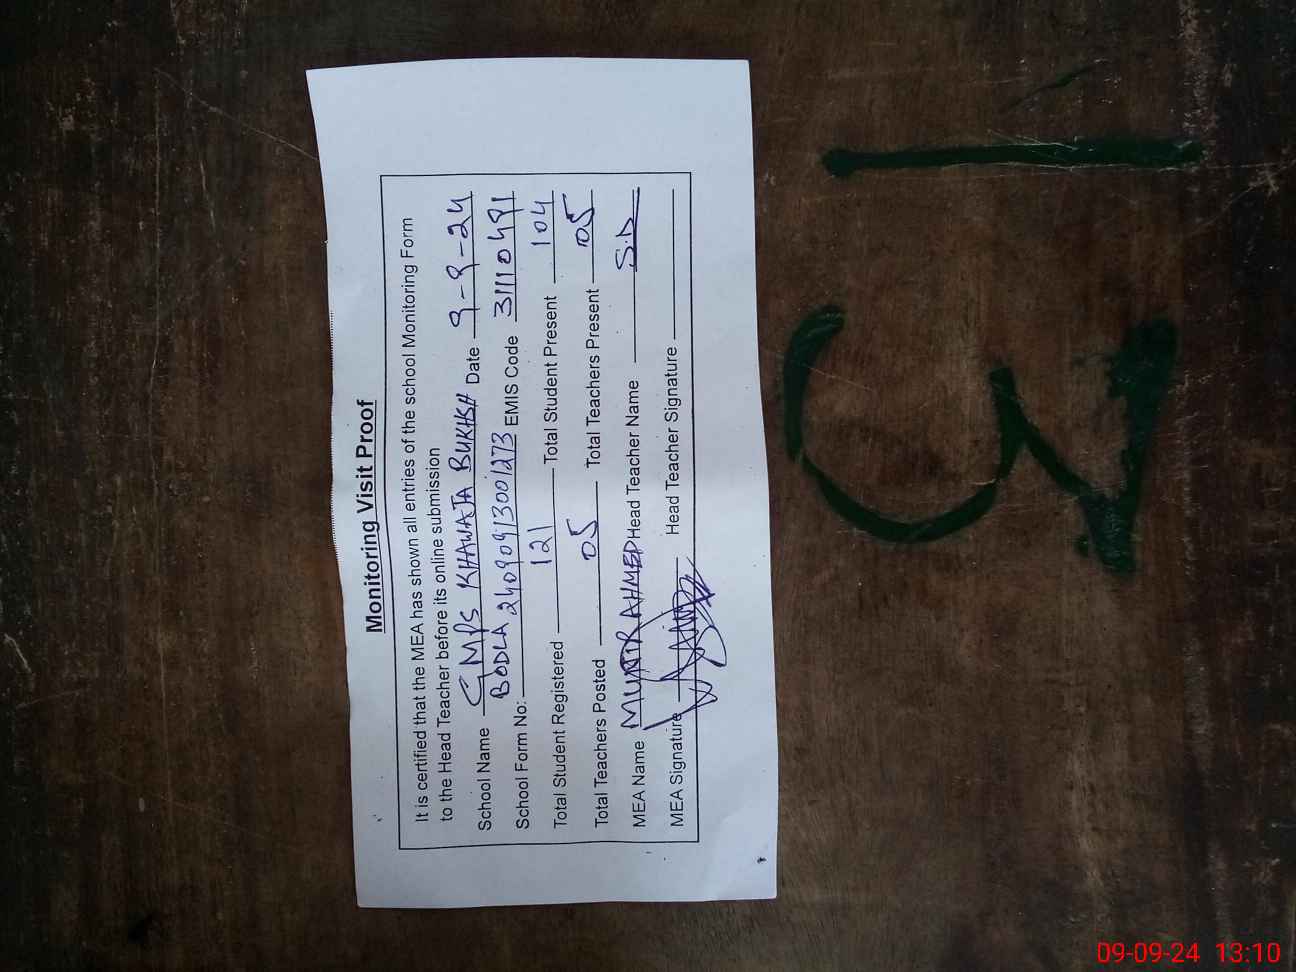 Monitoring Visit Proof
It is certified that the MEA has shown all entries of the school Monitoring Form
to the Head Teacher before its online submission
School Name GMPS KHAWAJA BUKHSH Date 9-9-24
BODLA
School Form No: 24090913001273 EMIS Code 31110491
Total Student Registered 121 Total Student Present 104
Total Teachers Posted 05 Total Teachers Present 05
MEA Name MUNIR AHMED Head Teacher Name S.D
MEA Signature Head Teacher Signature
09-09-24 13:10